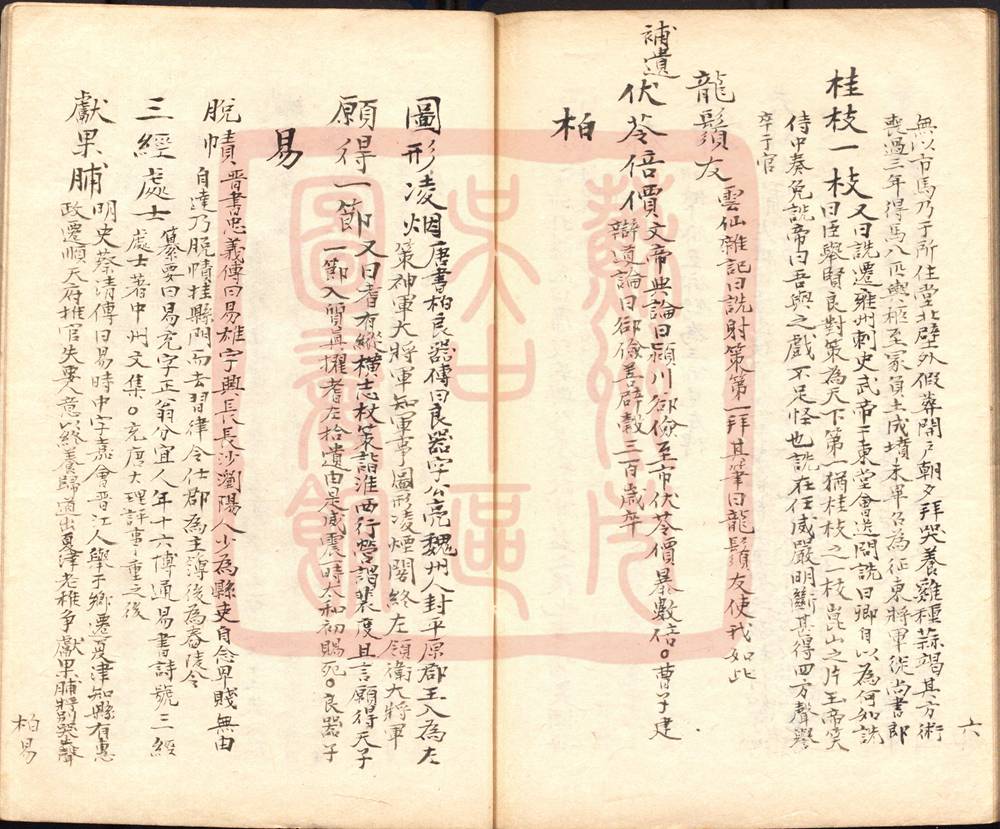 六
無以市馬乃于所住堂北壁外假葬開戶朝夕拜哭養雞種蒜竭其方術
喪過三年得馬八匹輿柩至冢負土成墳未畢召為征東將軍從尚書郎
桂枝一枝 又曰詵遷雍州刺史武帝于東堂會送問詵曰卿自以為何如詵
曰臣舉賢良對策為天下第一猶桂枝之一枝崑山之片玉帝笑
侍中奏免詵帝曰吾與之戲不足怪也詵在任威嚴明斷甚得四方聲譽
卒于官
龍鬚友 雲仙雜記曰詵射策第一拜其筆曰龍鬚友使我如此
補遺
伏苓倍價 文帝典論曰潁川郤儉至市伏苓價暴數倍○曹子建
辯道論曰郤儉善辟穀三百歲卒
柏
圖形凌烟 唐書柏良器傳曰良器字公亮魏州人封平原郡王入為左
策神軍大將軍知軍事圖形凌煙閣終左領衛大將軍
願得一節 又曰耆有縱橫志杖策詣淮西行營謁裴度且言願得天子
一節入質真擢耆左拾遺由是威震一時太和初賜死○良器子
易
脫幘 晉書忠義傳曰易雄字興長長沙瀏陽人少為縣吏自念卑賤無由
自達乃脫幘挂縣門而去習律令仕郡為主簿後為舂陵令
三經處士 纂要曰易充字正翁分宜人年十六傳通易書詩號三經
處士著中州文集○充唐大理評事重之後
獻果脯 明史蔡清傳曰易時中字嘉會晉江人舉于鄉遷夏津知縣有惠
政遷順天府推官失要人意以終養歸道出夏津老稚爭獻果脯將別哭聲
柏易
蘇州市
吳中區
圖書館